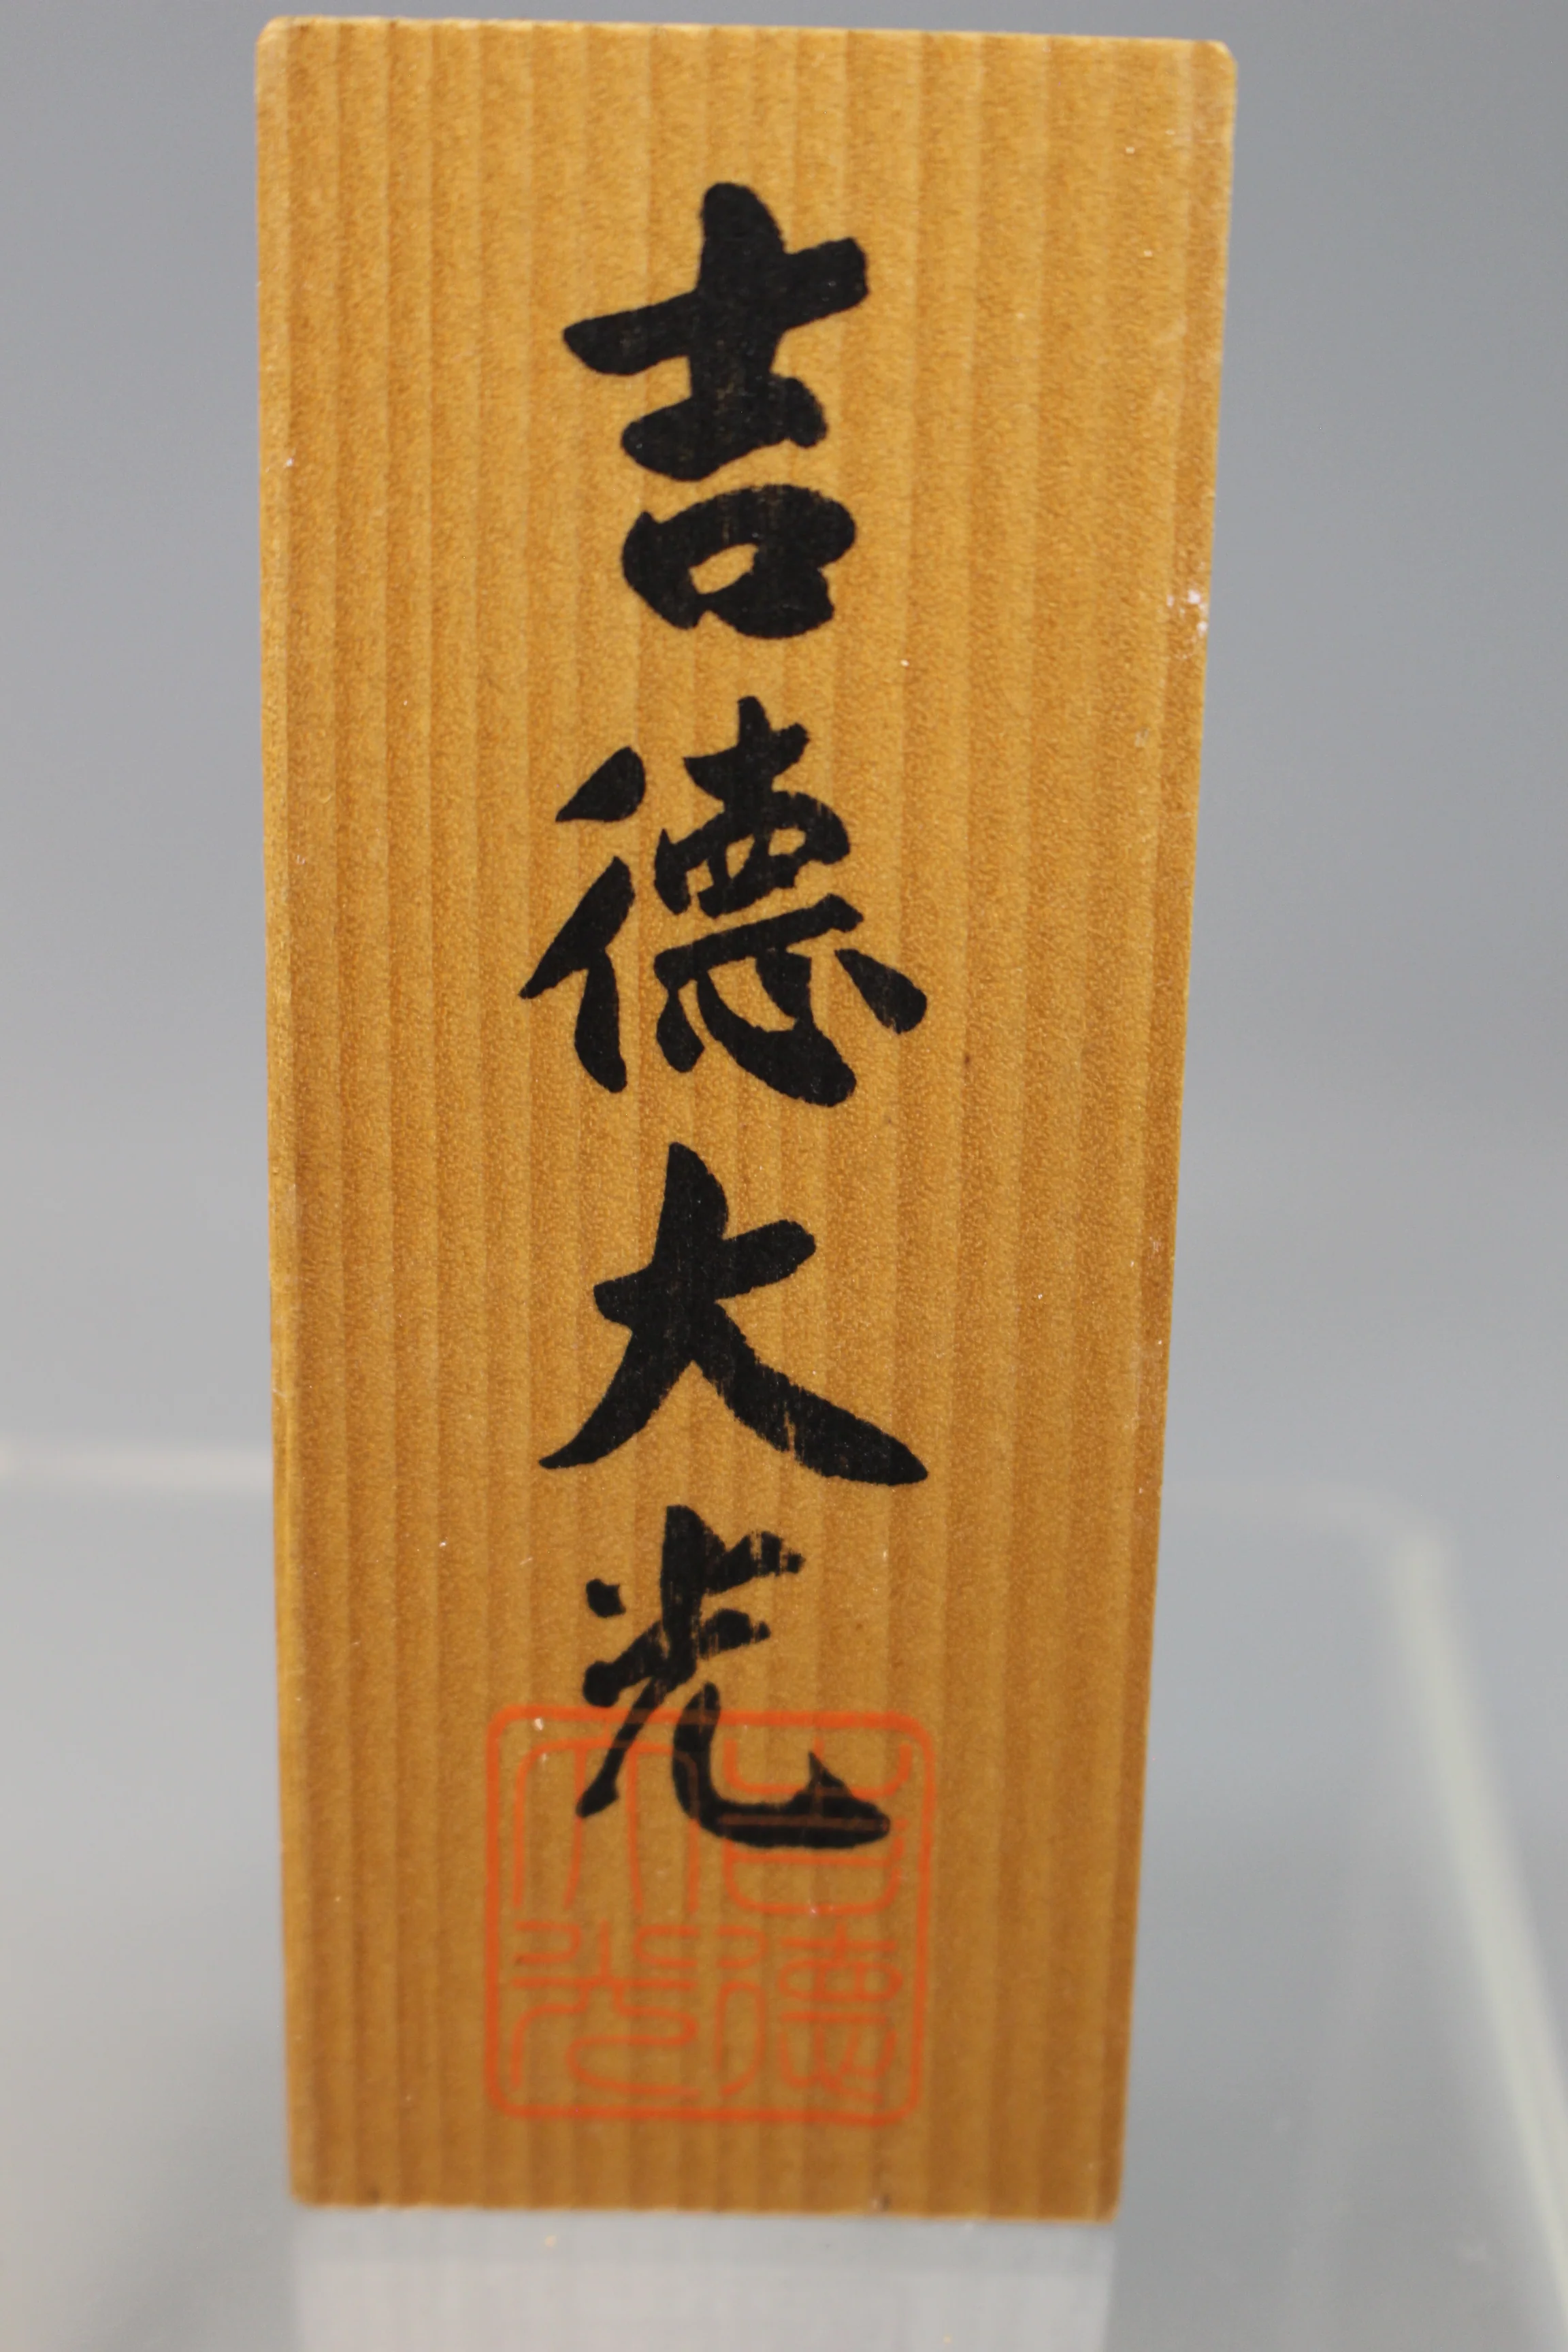 吉徳大光
吉徳
大光